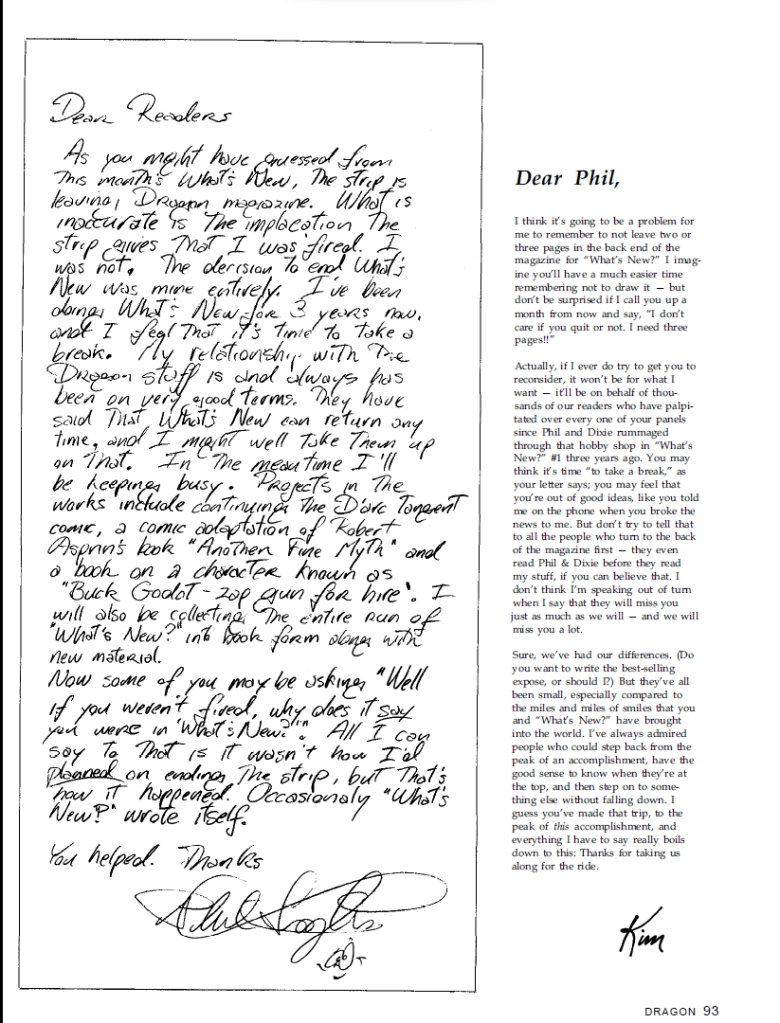 Dear Readers
As you might have guessed from
this month's What's New, The strip is
leaving Dragon magazine. What is
inaccurate is The implacation The
strip gives That I was fired. I
was not. The decision To end What's
New was mine entirely. I've been
doing What's New for 3 years now,
and I feel That it's Time to take a
break. My relationship with The
Dragon staff is and always has
been on very good terms. They have
said That What's New can return any
time, and I might well Take Them up
on That. In The meantime I'll
be keeping busy. Projects in The
works include continuing The D'arc Tangent
comic, a comic adaptation of Robert
Asprin's book "Another Fine Myth" and
a book on a character known as
"Buck Godot - zap gun for hire". I
will also be collecting The entire run of
"What's New?" into book form along with
new material.
Now some of you may be asking "Well
if you weren't fired, why does it say
you were in 'What's New?'". All I can
say To That is it wasn't how I'd
planned on ending The strip, but That's
how it happened. Occasionaly "What's
New?" wrote itself.
You helped. Thanks
Phil Foglio
Dear Phil,
I think it's going to be a problem for
me to remember to not leave two or
three pages in the back end of the
magazine for "What's New?" I imag-
ine you'll have a much easier time
remembering not to draw it — but
don't be surprised if I call you up a
month from now and say, "I don't
care if you quit or not. I need three
pages!!"
Actually, if I ever do try to get you to
reconsider, it won't be for what I
want — it'll be on behalf of thou-
sands of our readers who have palpi-
tated over every one of your panels
since Phil and Dixie rummaged
through that hobby shop in "What's
New?" #1 three years ago. You may
think it's time "to take a break," as
your letter says; you may feel that
you're out of good ideas, like you told
me on the phone when you broke the
news to me. But don't try to tell that
to all the people who turn to the back
of the magazine first — they even
read Phil & Dixie before they read
my stuff, if you can believe that. I
don't think I'm speaking out of turn
when I say that they will miss you
just as much as we will — and we will
miss you a lot.
Sure, we've had our differences. (Do
you want to write the best-selling
expose, or should I?) But they've all
been small, especially compared to
the miles and miles of smiles that you
and "What's New?" have brought
into the world. I've always admired
people who could step back from the
peak of an accomplishment, have the
good sense to know when they're at
the top, and then step on to some-
thing else without falling down. I
guess you've made that trip, to the
peak of this accomplishment, and
everything I have to say really boils
down to this: Thanks for taking us
along for the ride.
Kim
DRAGON 93